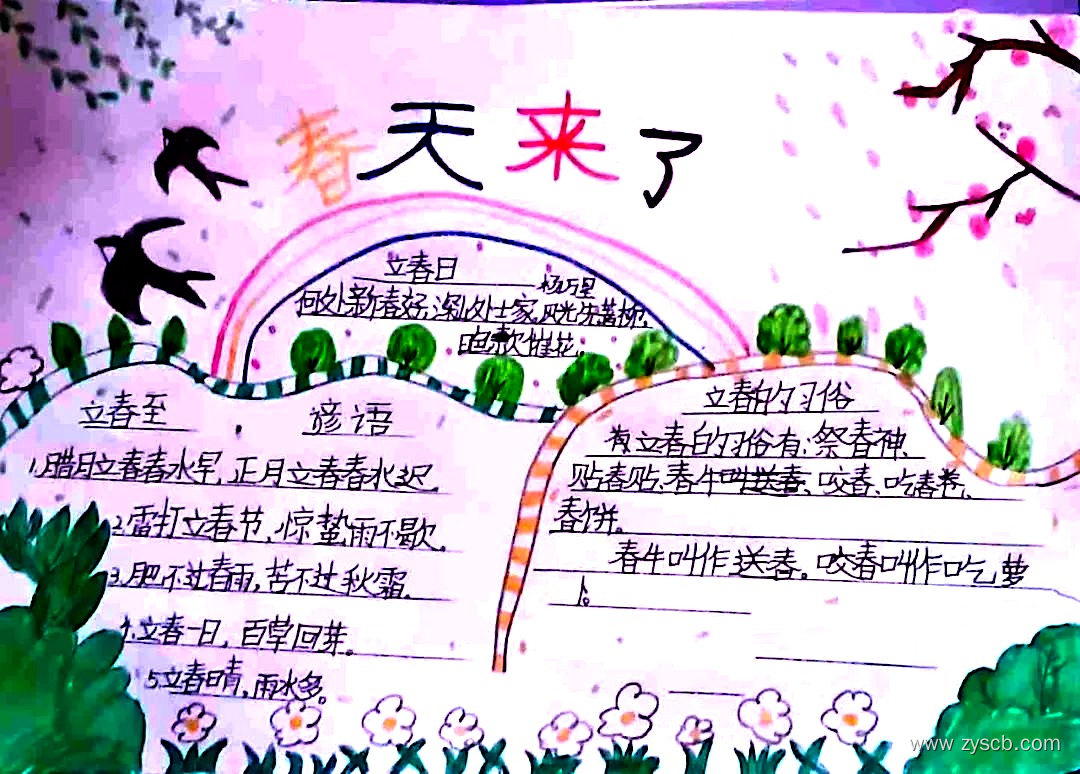 春天来了
立春日 杨万里
何处新春好,深山处士家,风光先着柳,
催花。
立春至 谚语
1.腊月立春春水早,正月立春春水迟。
2.雷打立春节,惊蛰雨不歇。
3.肥不过春雨,苦不过秋霜。
4.立春一日,百草回芽。
5.立春日晴,雨水多。
立春的习俗
立春的习俗有:祭春神、
贴春贴、春牛叫送春、咬春、吃春卷、
春饼。
春牛叫作送春。咬春叫作吃萝
卜。
www.zyscb.com